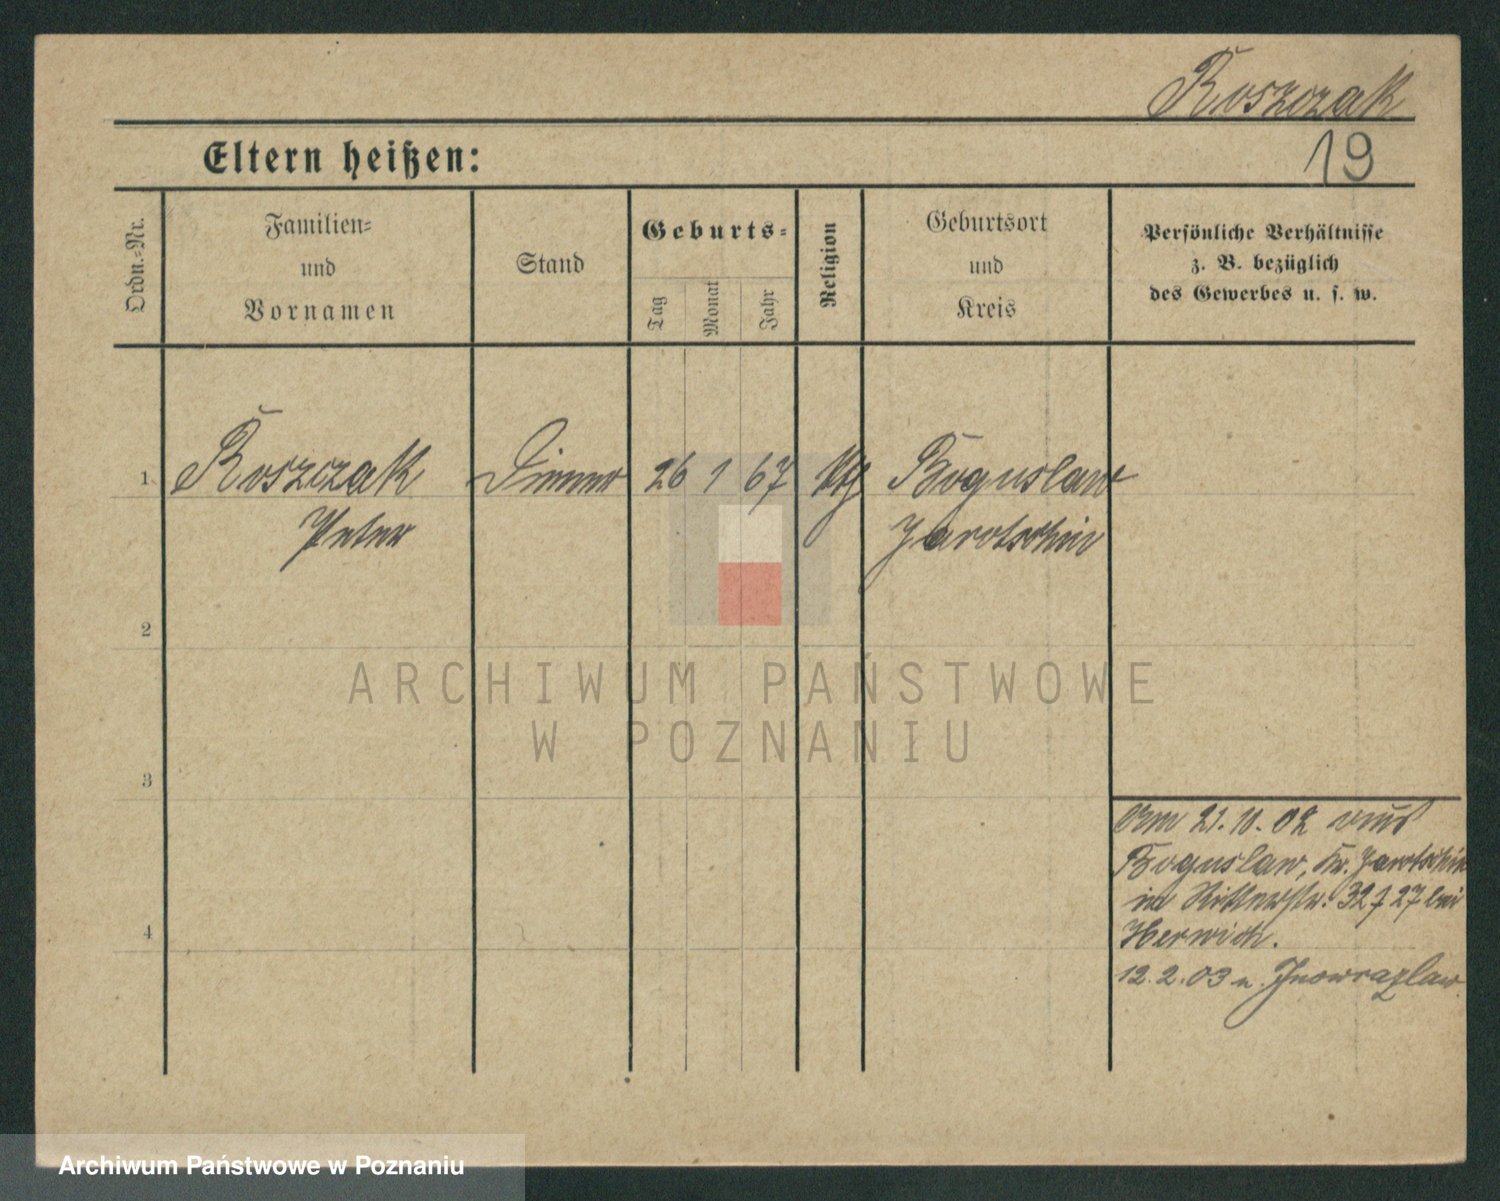 Roszczak
19
Eltern heißen:
Ordn.=Nr.
Familien=
und
Vornamen
Stand
Geburts=
Tag
Monat
Jahr
Religion
Geburtsort
und
Kreis
Persönliche Verhältnisse
z. B. bezüglich
des Gewerbes u. s. w.
1 Roszczak Diener 26 1 67 ktl Boguslaw
Peter Jarotschin
2
3
4
Am 21. 11. 02 aus
Boguslaw, Kr. Jarotschin
in Ritterstr. 32/27 bei
Herwich.
12. 2. 03 n. Inowrazlaw.
ARCHIWUM PAŃSTWOWE
W POZNANIU
Archiwum Państwowe w Poznaniu